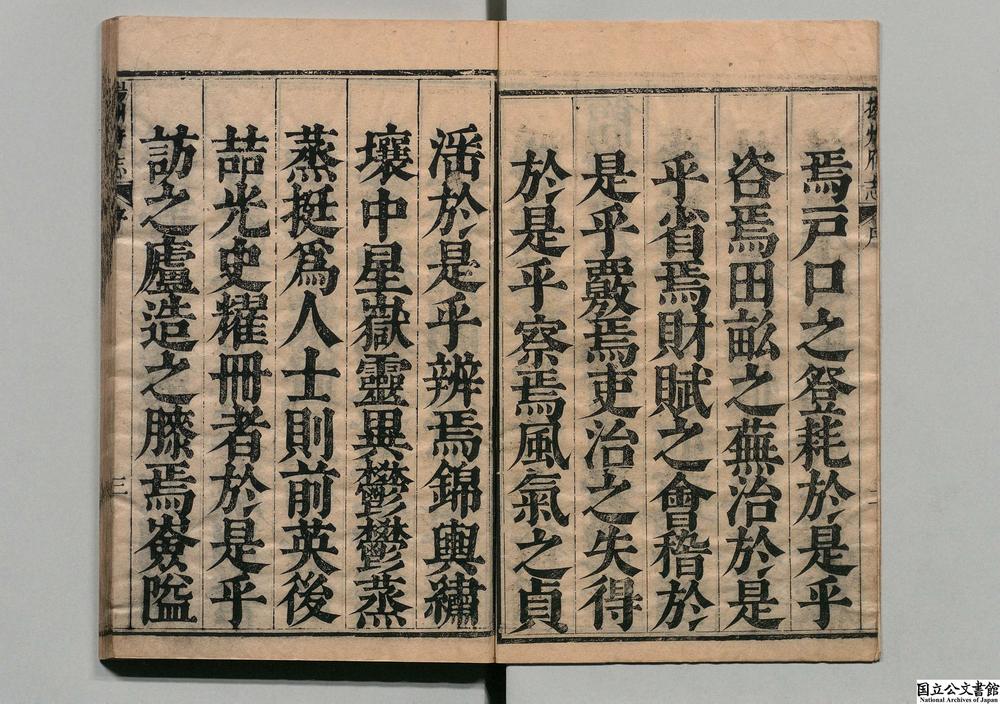 焉戸口之登耗於是乎
咨焉田畆之蕪治於是
乎省焉財賦之會稽於
是乎覈焉吏治之失得
於是乎察焉風氣之貞
滛於是乎辨焉錦輿繡
壤中星嶽靈異鬱鬱蒸
蒸挺爲人士則前英後
喆光史耀冊者於是乎
訪之廬造之膝焉嶮隘
揚州府志
序
二
三
国立公文書館
National Archives of Japan